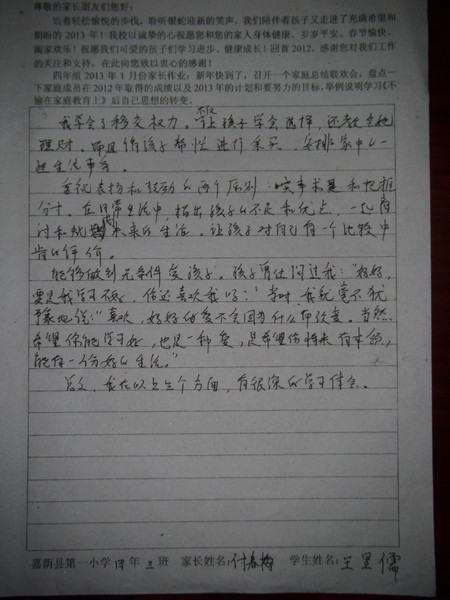 尊敬的家长朋友们您好:
迈着轻松愉悦的步伐,聆听银蛇迎新的笑声,我们陪伴着孩子又走进了充满希望和
期盼的2013年!我校以诚挚的心祝愿您和您的家人身体健康、岁岁平安、春节愉快、
阖家欢乐!祝愿我们可爱的孩子们学习进步、健康成长!回首2012,感谢您对我们工作
的关注和支持,在此向您致以衷心的感谢!
四年组2013年1月份家长作业:新年快到了,召开一个家庭总结联欢会,盘点一
下家庭成员在2012年取得的成绩以及2013年的计划和要努力的目标,举例说明学习《不
输在家庭教育上》后自己思想的转变。
我学会了移交权力。不仅让孩子学会选择,还教会他
理财。而且偷孩子帮忙进行采买,安排家中的一
些生活事务。
表扬和鼓励的两个原则:实事求是和把握
分寸。在日常生活中,指出孩子的不足和优点,一起商
讨和规划未来的生活。让孩子对自己有一个比较中
肯的评价。
能够做到无条件爱孩子。孩子曾经问过我:“妈妈,
要是我学习不好,你还喜欢我吗?”当时我就毫不犹
豫地说:“喜欢,妈妈的爱不会因为什么而改变。当然
希望你能学习好,也是一种爱,是希望你将来有本领,
能有一份好的生活。”
总之,我在以上三个方面,有很深的学习体会。
嘉荫县第一小学 四年 三班 家长姓名:付春梅 学生姓名:王星儒